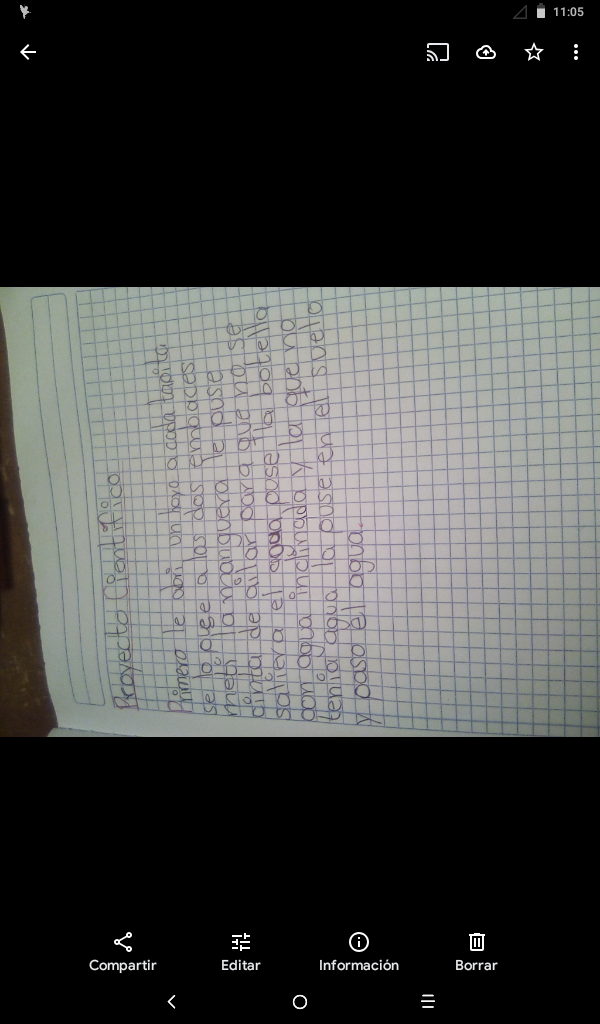 11:05
Proyecto Cientifico
Primero le abri un hoyo a cada tapita
se lo puse a los dos embaces
meti la manguera le puse
cinta de ailar para que no se
saliera el agua puse la botella
con agua inclinada y la que no
tenia agua la puse en el suelo
y paso el agua.
Compartir
Editar
Información
Borrar